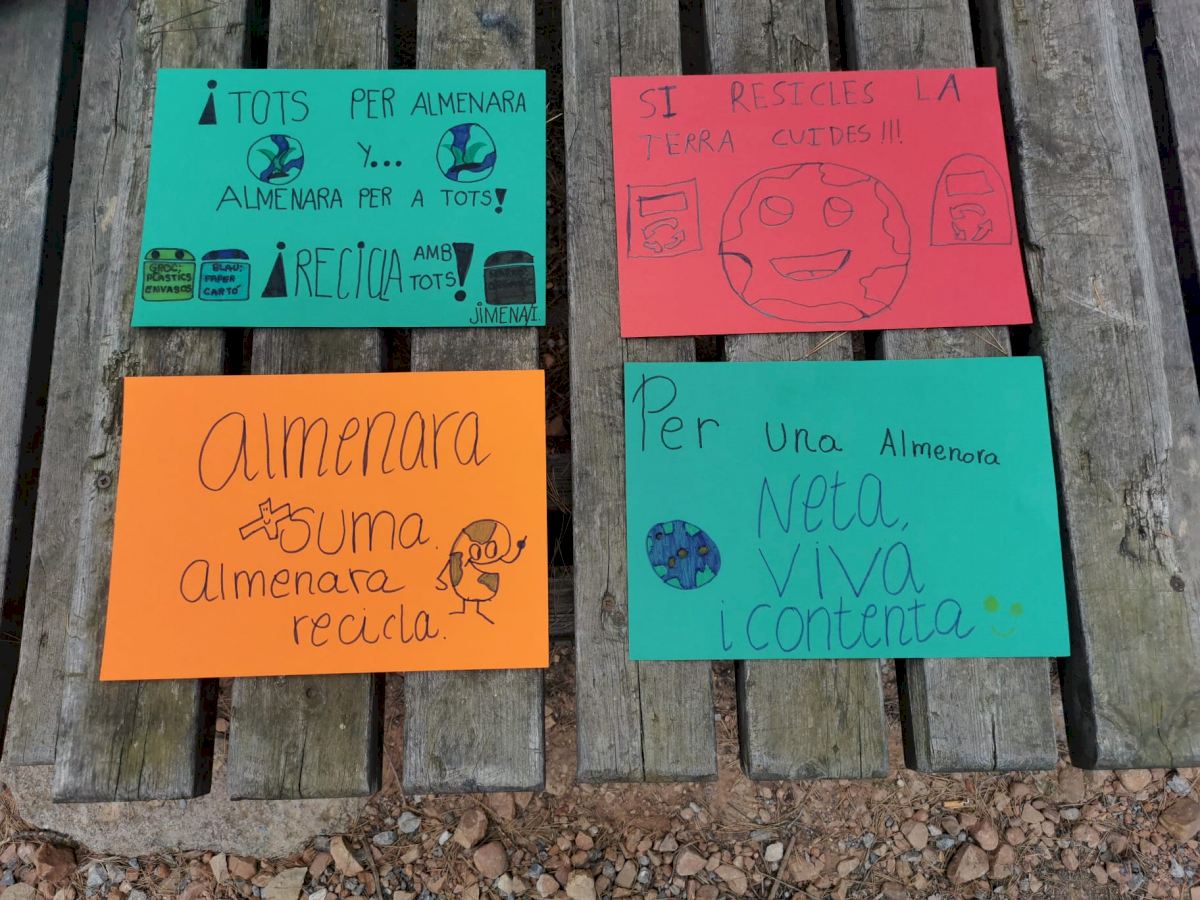 ¡TOTS PER ALMENARA
Y...
ALMENARA PER A TOTS!
GROC:
PLASTICS
ENVASOS
BLAU:
PAPER
CARTÓ
¡RECICLA AMB
TOTS!
JIMENA/I.
SI RESICLES LA
TERRA CUIDES!!!
almenara
suma.
almenara
recicla.
Per una Almenara
Neta,
viva
i contenta